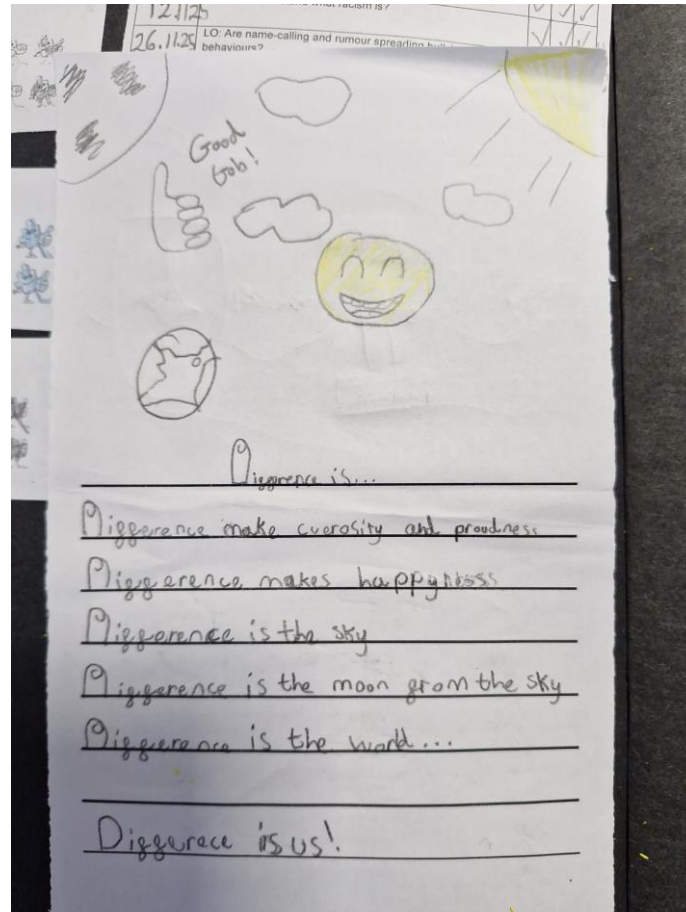 12.11.25 what racism is?
26.11.25 LO: Are name-calling and rumour spreading
behaviours?
Good
Gob!
Difference is...
Difference make cuerosity and proudness
Difference makes happyness
Difference is the sky
Difference is the moon from the sky
Difference is the world...
Differece is us!